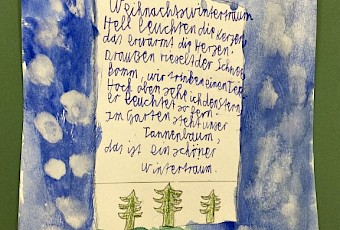 Weihnachtswintertraum
Hell leuchten die Kerzen
das erwärmt die Herzen.
Draußen rieselt der Schnee
komm, wir trinken einen Tee
Hoch oben sehe ich den Stern,
er leuchtet so gern.
Im Garten steht unser
Tannenbaum,
das ist ein schöner
Wintertraum.